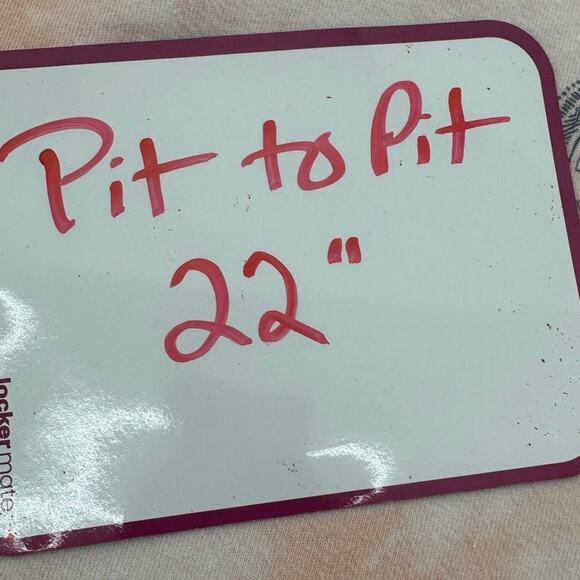 Pit to Pit
22"
lockermate